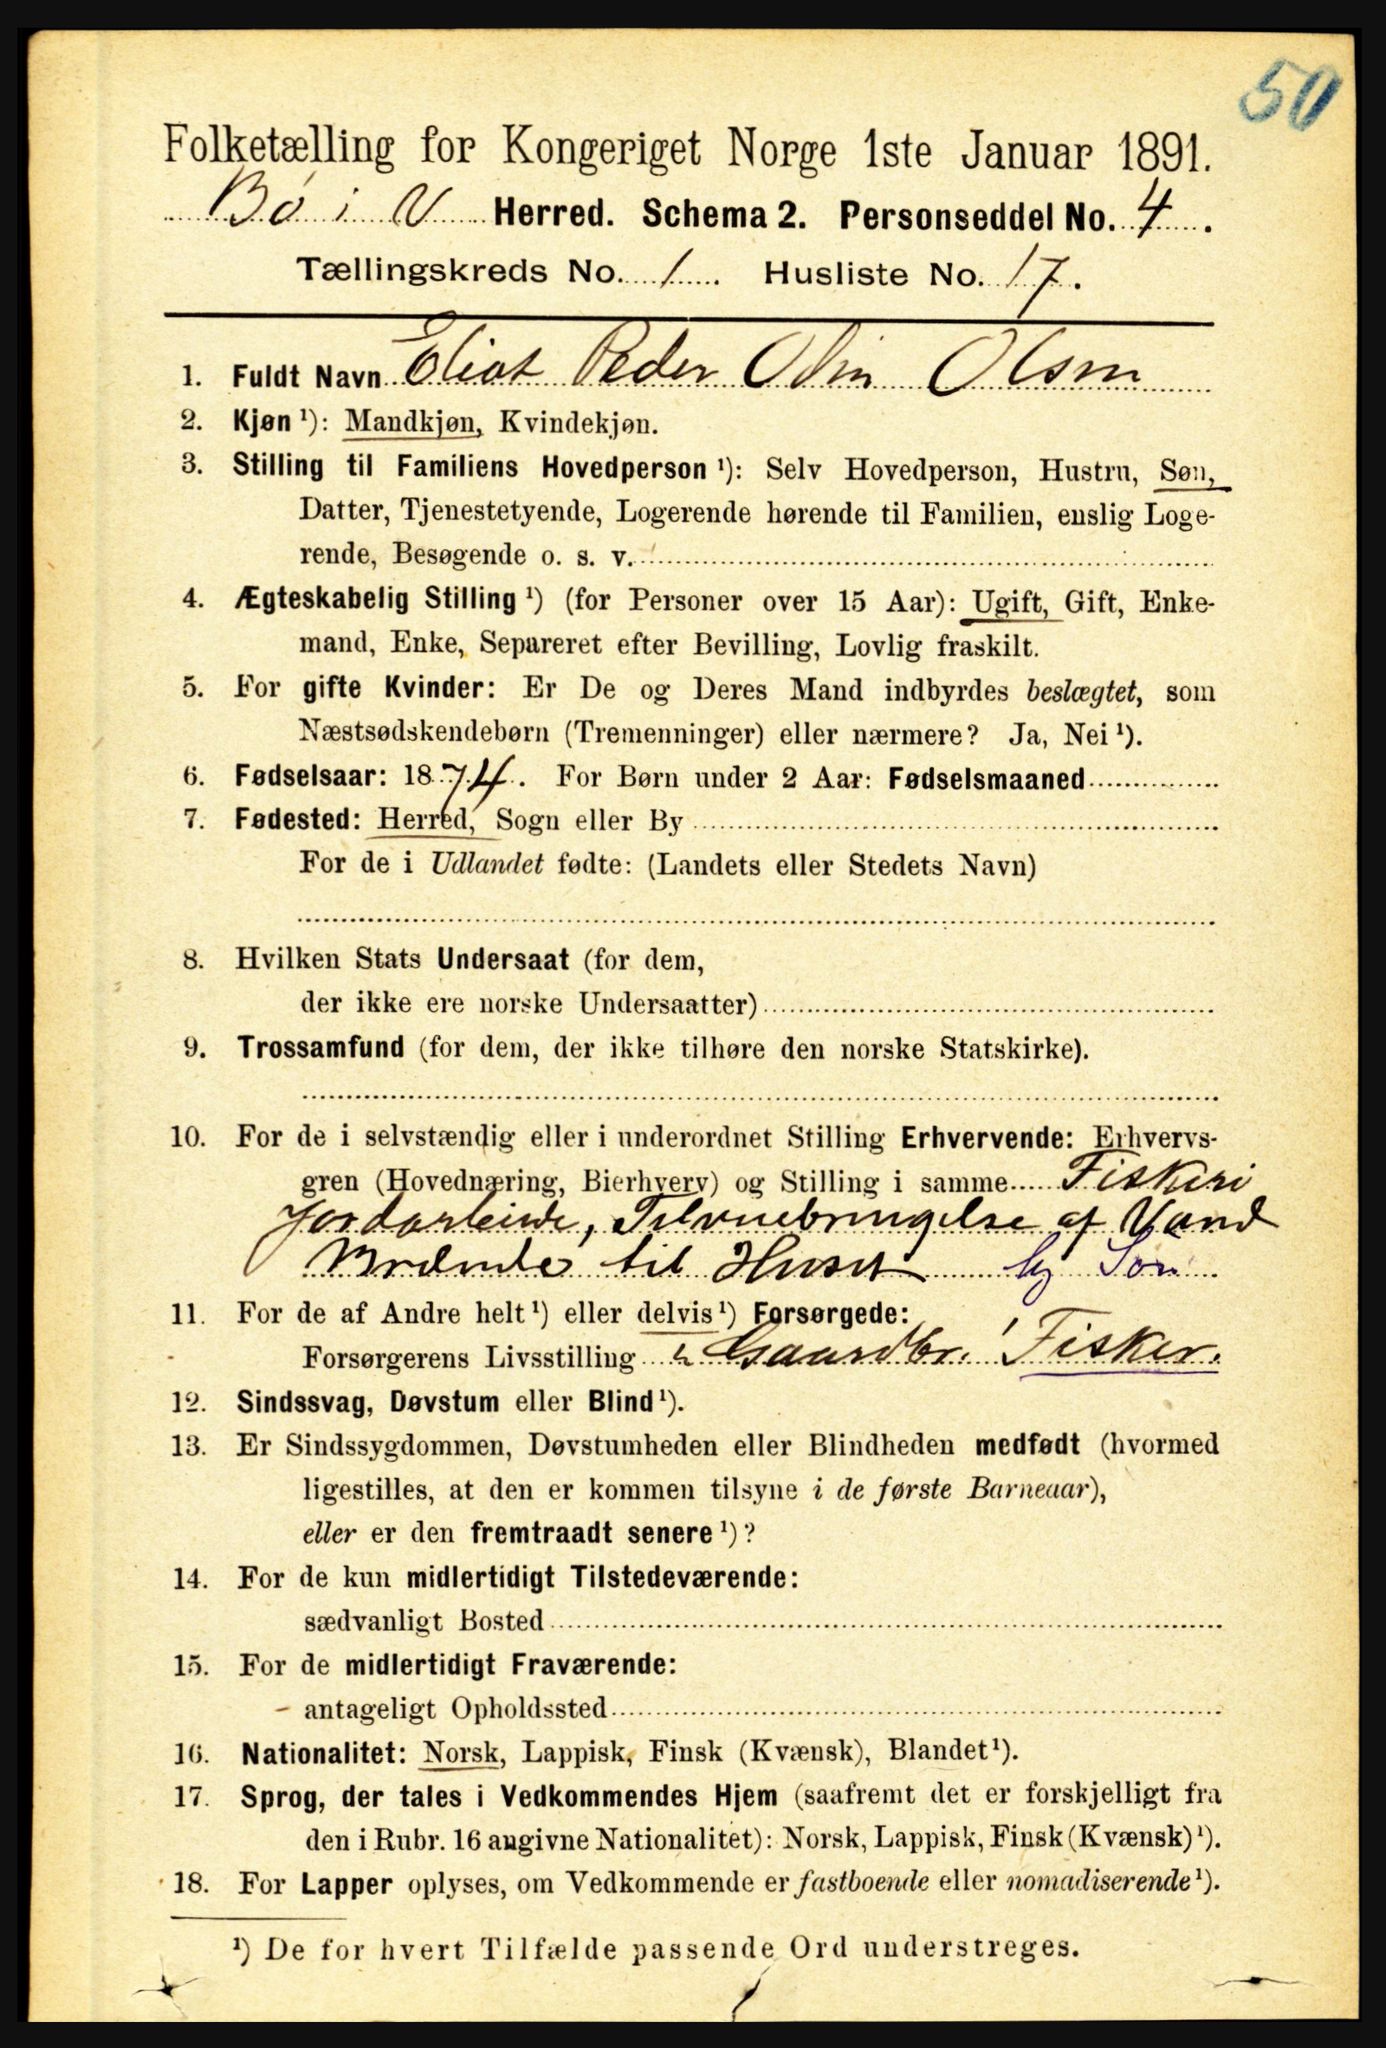 50
Folketælling for Kongeriget Norge 1ste Januar 1891.
Bø i V Herred. Schema 2. Personseddel No. 4.
Tællingskreds No. 1. Husliste No. 17.
1. Fuldt Navn Elias Peder Odin Olsen
2. Kjøn ¹): Mandkjøn, Kvindekjøn.
3. Stilling til Familiens Hovedperson ¹): Selv Hovedperson, Hustru, Søn,
Datter, Tjenestetyende, Logerende hørende til Familien, enslig Loge-
rende, Besøgende o. s. v.
4. Ægteskabelig Stilling ¹) (for Personer over 15 Aar): Ugift, Gift, Enke-
mand, Enke, Separeret efter Bevilling, Lovlig fraskilt.
5. For gifte Kvinder: Er De og Deres Mand indbyrdes beslægtet, som
Næstsødskendebørn (Tremenninger) eller nærmere? Ja, Nei ¹).
6. Fødselsaar: 1874. For Børn under 2 Aar: Fødselsmaaned
7. Fødested: Herred, Sogn eller By
For de i Udlandet fødte: (Landets eller Stedets Navn)
8. Hvilken Stats Undersaat (for dem,
der ikke ere norske Undersaatter)
9. Trossamfund (for dem, der ikke tilhøre den norske Statskirke).
10. For de i selvstændig eller i underordnet Stilling Erhvervende: Erhvervs-
gren (Hovednæring, Bierhverv) og Stilling i samme Fiskeri
Jordarbeide, Tilveiebringelse af Vand
Brænde til Huset hj Søn
11. For de af Andre helt ¹) eller delvis ¹) Forsørgede:
Forsørgerens Livsstilling Gaardbr. Fisker.
12. Sindssvag, Døvstum eller Blind ¹).
13. Er Sindssygdommen, Døvstumheden eller Blindheden medfødt (hvormed
ligestilles, at den er kommen tilsyne i de første Barneaar),
eller er den fremtraadt senere ¹)?
14. For de kun midlertidigt Tilstedeværende:
sædvanligt Bosted
15. For de midlertidigt Fraværende:
antageligt Opholdssted
16. Nationalitet: Norsk, Lappisk, Finsk (Kvænsk), Blandet ¹).
17. Sprog, der tales i Vedkommendes Hjem (saafremt det er forskjelligt fra
den i Rubr. 16 angivne Nationalitet): Norsk, Lappisk, Finsk (Kvænsk) ¹).
18. For Lapper oplyses, om Vedkommende er fastboende eller nomadiserende ¹).
¹) De for hvert Tilfælde passende Ord understreges.